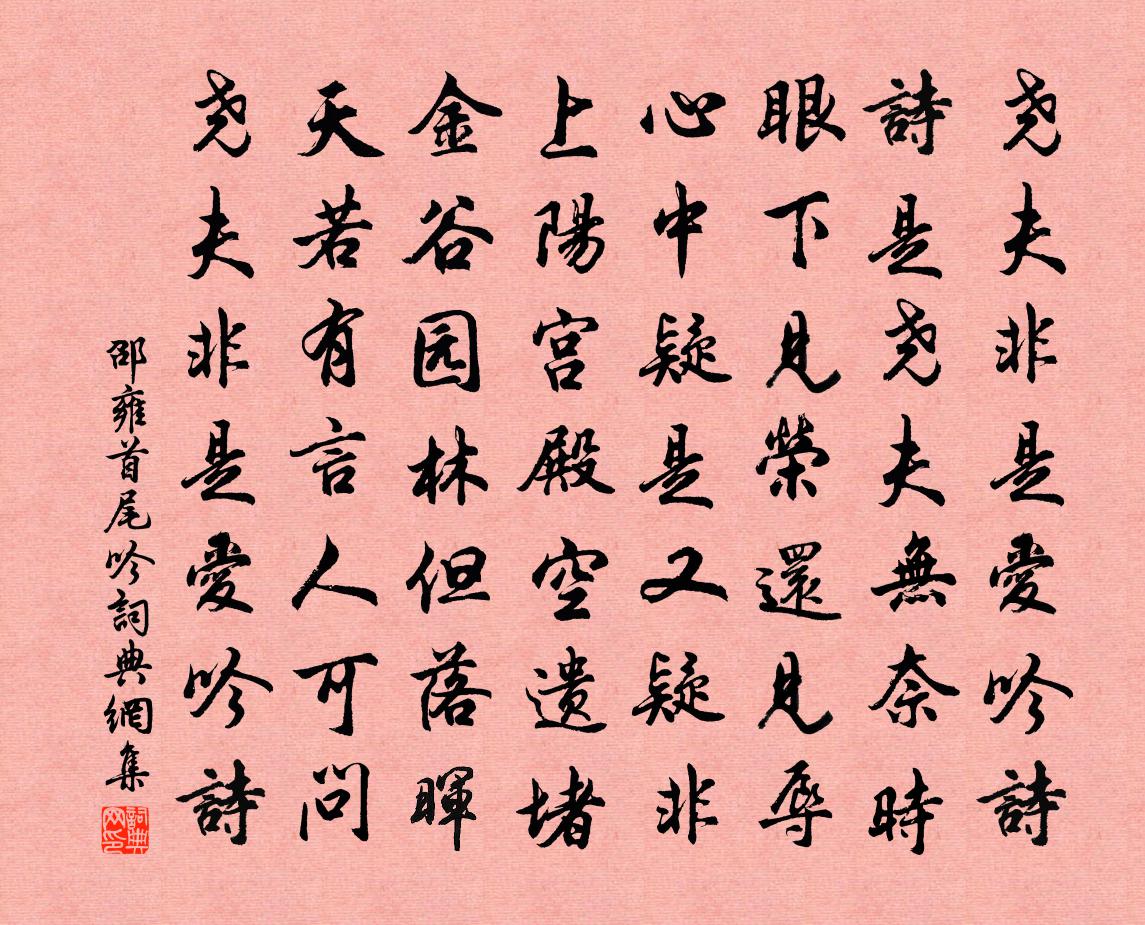 尧夫非是愛吟詩
詩是尧夫無奈時
眼下見榮還見辱
心中疑是又疑非
上陽宫殿空遺堵
金谷园林但落暉
天若有言人可問
尧夫非是愛吟詩
邵雍首尾吟詞典網集
詞典
网印